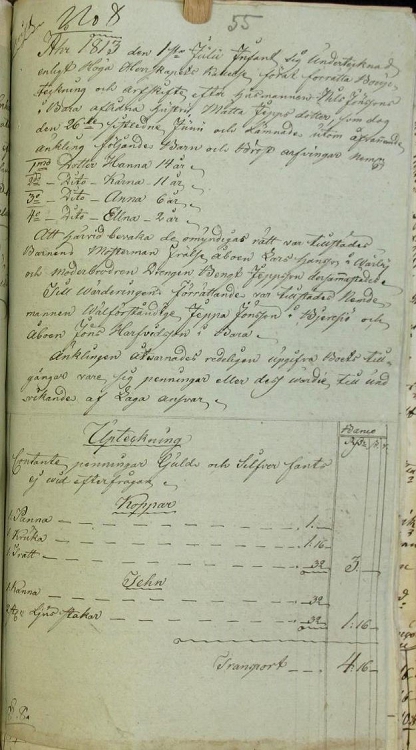 No 8
55
Åhr 1813 den 1sta Julii Infant sig Undertecknad
enligt Höga Öfverskapets befallning, förat förrätta Bouup-
teckning och Arfskifte efter Husmannen Nils Jönssons
i Bara afledna hustru Mätta Jeppsdotter, som dog
den 26te sistledne Junii och lämnade utom efterlefvande
ankling följande Barn och Bröst arfvingar nemn.
1mo Dotter Hanna 14 år
2do Dito - Karna - 11 år
3o - Dito - Anna 6 år
4o - Dito - Ellna - 2 år
Att härvid bevaka de omyndigas rätt var tillstädes
Barnens Mosterman Frälse åboen Lars Hansson i
och Moderbrodren Drengen Bengt Jeppsson dersammastädes
Till Warderingens förrättande var tillstädes Nämde-
mannen Wälförståndige Jeppa Jönsson i Bjershög och
Åboen Jöns Hartvidsson i Bara
Anklingen åtvarnades redeligen uppgifva Boets till-
gångar vare sig penningar eller dess värde, till und-
vikande af Laga ansvar
Upteckning
Banco
Rdr
Contante penningar Guld och Silfver fants
ej vid efterfrågan
Koppar
1 Panna — 1: —
1 Kruka — 1: 16
1 Tratt — 32 3 —
Tehn
1 Kanna — 32
2 st Ljus stakar — 32 1: 16
Transport — 4: 16